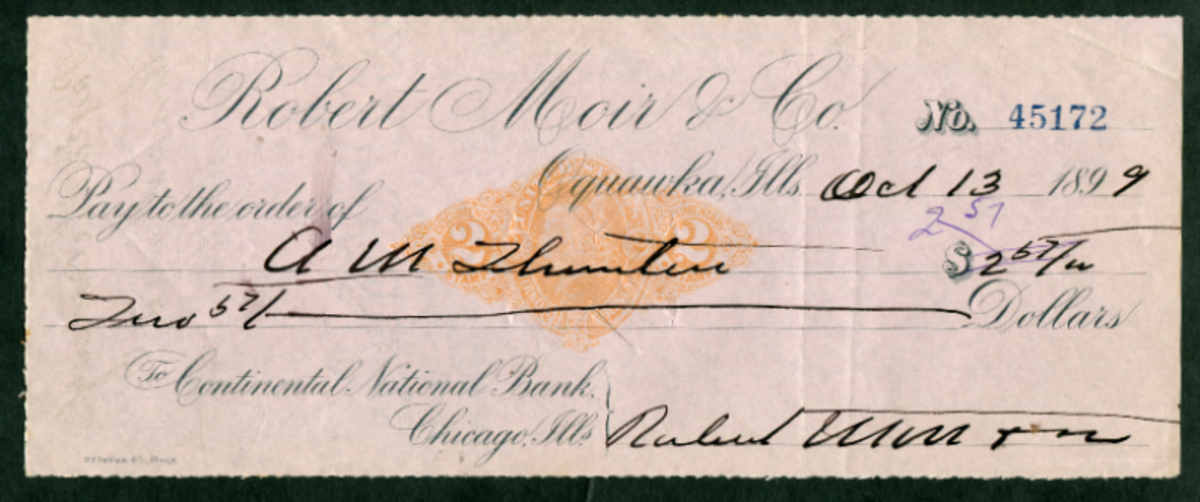 Robert Moir & Co.
No. 45172
Oquawka, Ills. Oct 13 1899
Pay to the order of
2 57
A M $2 57/
Two 57/ Dollars
To Continental National Bank,
Chicago, Ills.
Robert Moir & Co